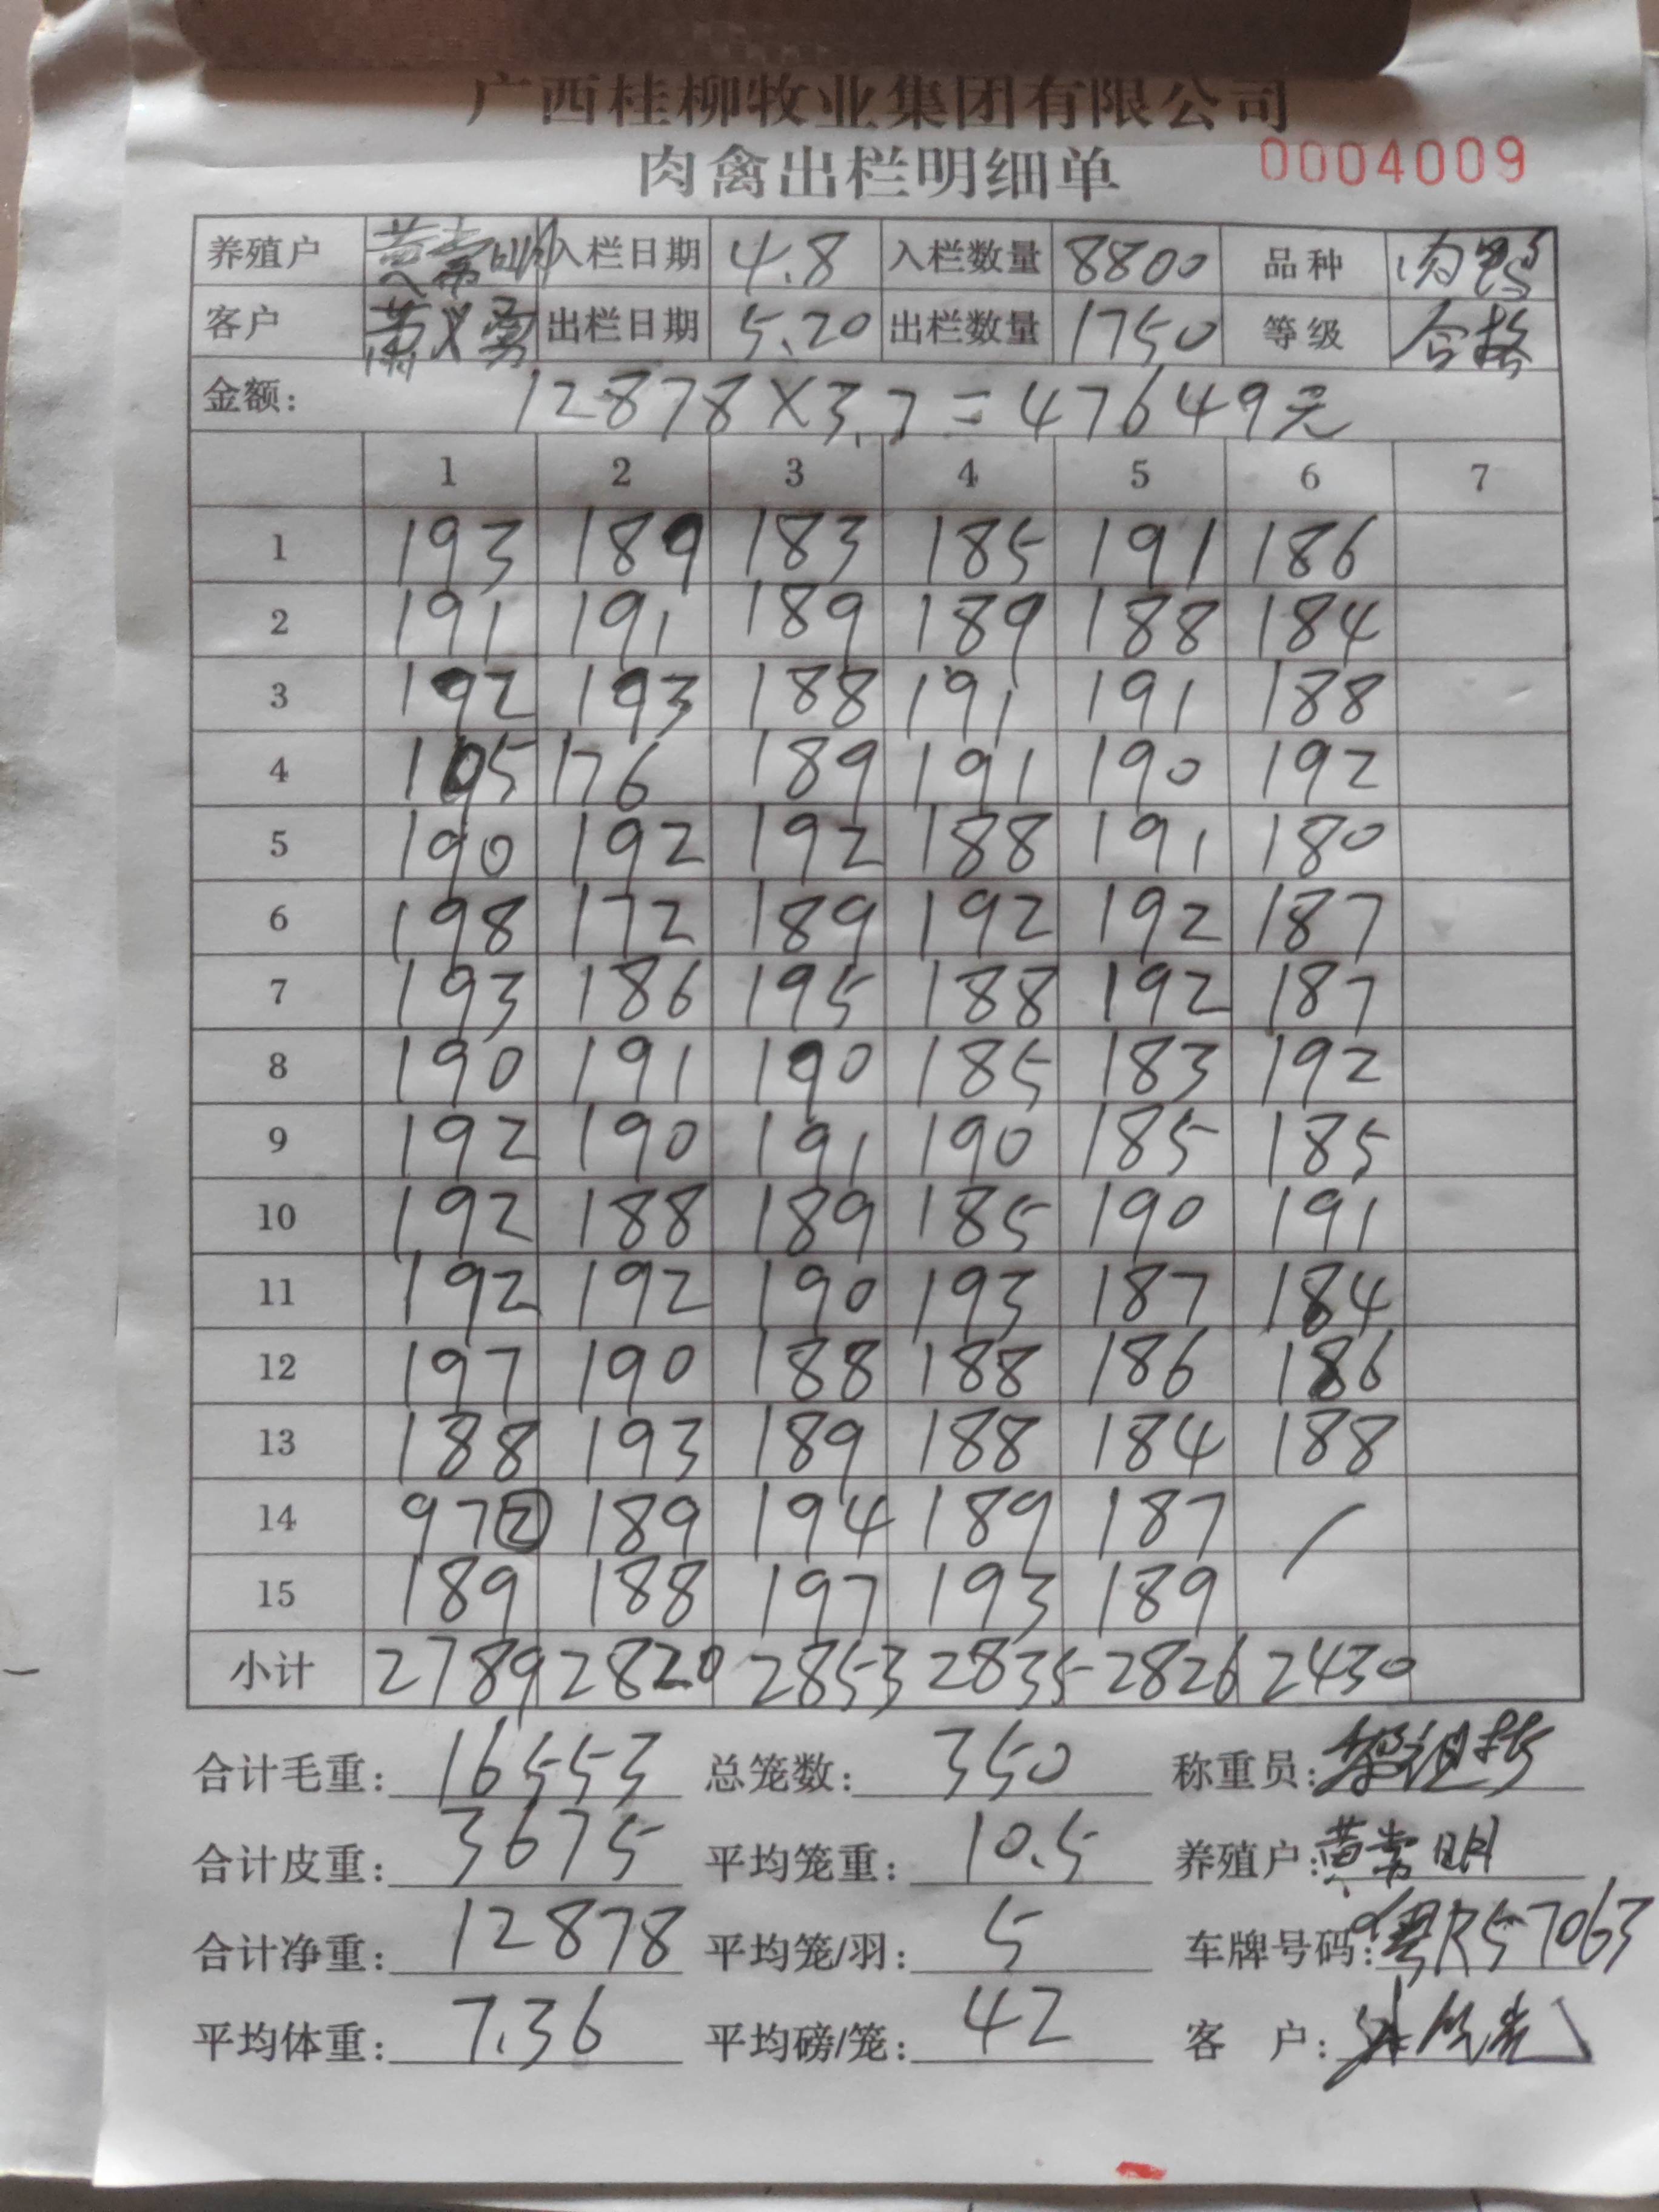 广西桂柳牧业集团有限公司
肉禽出栏明细单 0004009
养殖户 黄常明 入栏日期 4.8 入栏数量 8800 品种 肉鸭
客户 黄义勇 出栏日期 5.20 出栏数量 1750 等级 合格
金额: 12878×3.7=47649元
1 2 3 4 5 6 7
1 193 189 183 185 191 186
2 191 191 189 189 188 184
3 192 193 188 191 191 188
4 195 176 189 191 190 192
5 190 192 192 188 191 180
6 198 172 189 192 192 187
7 193 186 195 188 192 187
8 190 191 190 185 183 192
9 192 190 191 190 185 185
10 192 188 189 185 190 191
11 192 192 190 193 187 184
12 197 190 188 188 186 186
13 188 193 189 188 184 188
14 97② 189 194 189 187 /
15 189 188 197 193 189
小计 2789 2820 2853 2835 2826 2430
合计毛重: 16553 总笼数: 350 称重员:
合计皮重: 3675 平均笼重: 10.5 养殖户: 黄常明
合计净重: 12878 平均笼/羽: 5 车牌号码: 粤R57063
平均体重: 7.36 平均磅/笼: 42 客 户: